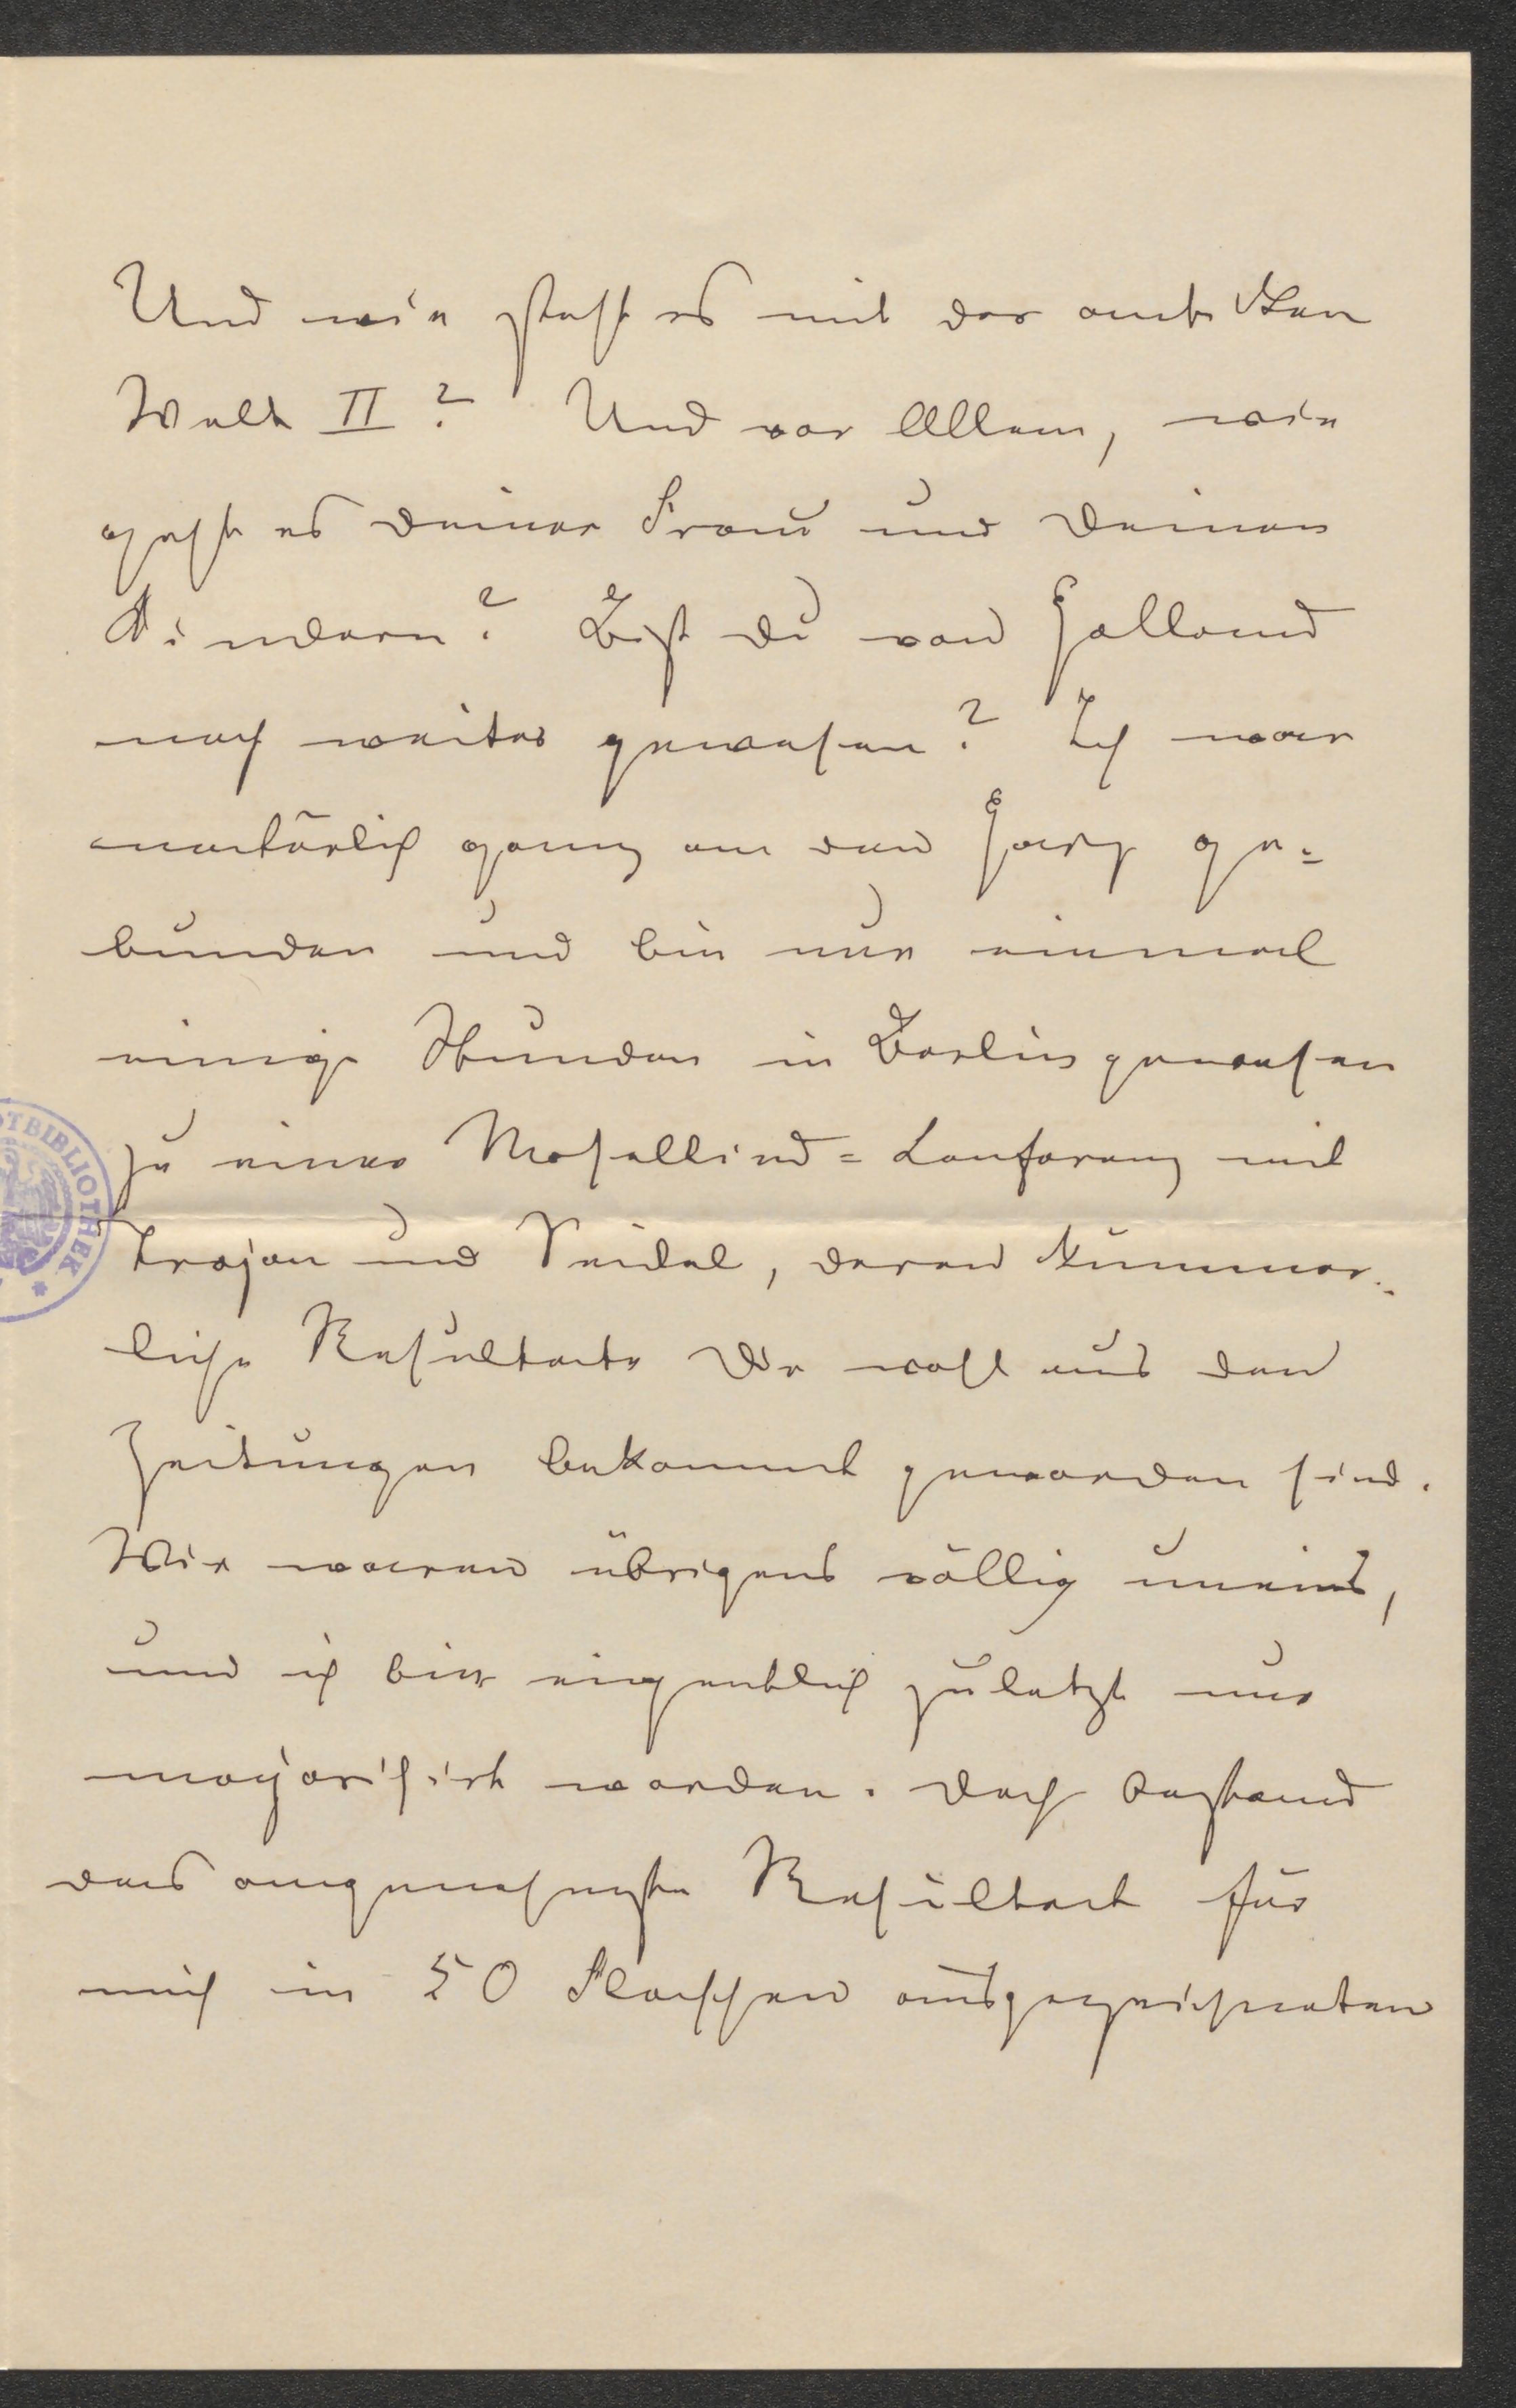 Und wie steht es mit der antiken
Welt II? Und vor Allem, wie
geht es Deiner Frau und Deinen
Kindern? Bist du von Holland
noch weiter gewesen? Ich war
natürlich ganz an den Harz ge=
bunden und bin nur einmal
einige Stunden in Berlin gewesen
zu einer Mosellied=Conferenz mit
Trojan und Seidel, deren kümmer=
liche Resultate Dir wohl aus den
Zeitungen bekannt geworden sind.
Wir waren übrigens völlig uneins,
und ich bin eigentlich zuletzt nur
majorisirt worden. Doch bestand
das angenehmste Resultat für
mich in 50 Flaschen ausgezeichneten
TBIBLIOTHEK